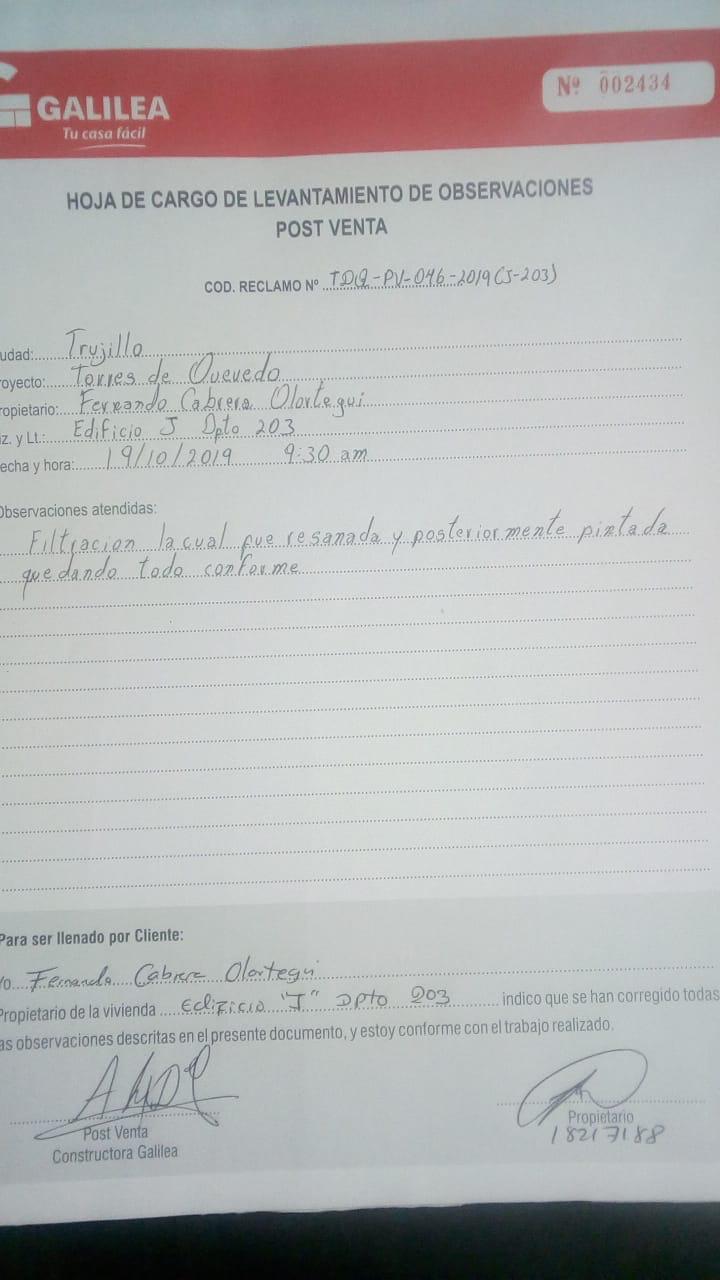 GALILEA
Tu casa fácil
Nº 002434
HOJA DE CARGO DE LEVANTAMIENTO DE OBSERVACIONES
POST VENTA
COD. RECLAMO Nº TDQ-PV-046-2019(J-203)
udad: Trujillo
royecto: Torres de Quevedo
ropietario: Fernando Cabrera Olortegui
z. y Lt.: Edificio J Dpto 203
echa y hora: 19/10/2019 9:30 am
Observaciones atendidas:
Filtracion la cual fue resanada y posteriormente pintada
quedando todo conforme
Para ser llenado por Cliente:
Yo Fernando Cabrera Olortegui
Propietario de la vivienda Edificio "J" DPto 203 indico que se han corregido todas
as observaciones descritas en el presente documento, y estoy conforme con el trabajo realizado.
Post Venta
Constructora Galilea
Propietario
18217188